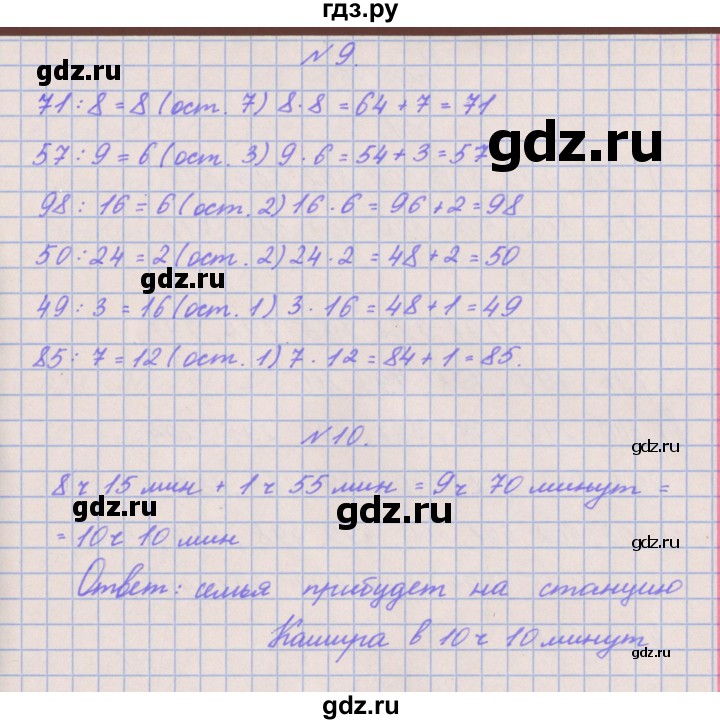 гдз.ру
№ 9.
gdz.ru
71 : 8 = 8 (ост. 7) 8 · 8 = 64 + 7 = 71
gdz.ru
57 : 9 = 6 (ост. 3) 9 · 6 = 54 + 3 = 57
98 : 16 = 6 (ост. 2) 16 · 6 = 96 + 2 = 98
50 : 24 = 2 (ост. 2) 24 · 2 = 48 + 2 = 50
gdz.ru
49 : 3 = 16 (ост. 1) 3 · 16 = 48 + 1 = 49
85 : 7 = 12 (ост. 1) 7 · 12 = 84 + 1 = 85.
№ 10.
gdz.ru
8 ч 15 мин + 1 ч 55 мин = 9 ч 70 минут =
gdz.ru
= 10 ч 10 мин
gdz.ru
Ответ: семья прибудет на станцию
Кашира в 10 ч 10 минут
gdz.ru
gdz.ru